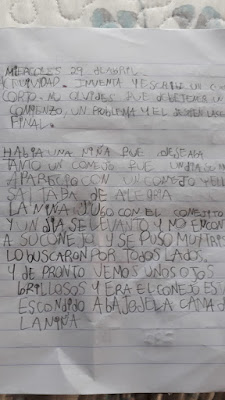 MIERCOLES 29 DE ABRIL
ACTIVIDAD. INVENTA Y ESCRIBE UN C
CORTO. NO OLVIDES QUE DEBE TENER UN
COMIENZO, UN PROBLEMA Y EL
FINAL.
HABIA UNA NIÑA QUE DESEABA
TANTO UN CONEJO QUE UN DIA SU M
APARECIO CON UN CONEJO Y ELL
SALTABA DE ALEGRIA
LA NIÑA JUGO CON EL CONEJITO
Y UN DIA SE LEVANTO Y NO ENCONT
A SU CONEJO Y SE PUSO MUY TRIS
LO BUSCARON POR TODOS LADOS.
Y DE PRONTO VEMOS UNOS OJOS
BRILLOSOS Y ERA EL CONEJO ESTA
ESCONDIDO ABAJO DE LA CAMA D
LA NIÑA